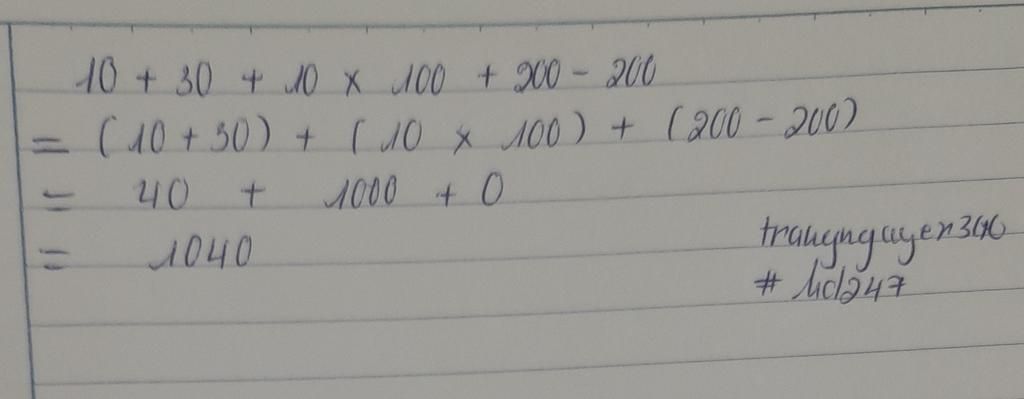 10 + 30 + 10 × 100 + 200 - 200
= (10 + 30) + (10 × 100) + (200 - 200)
= 40 + 1000 + 0
= 1040